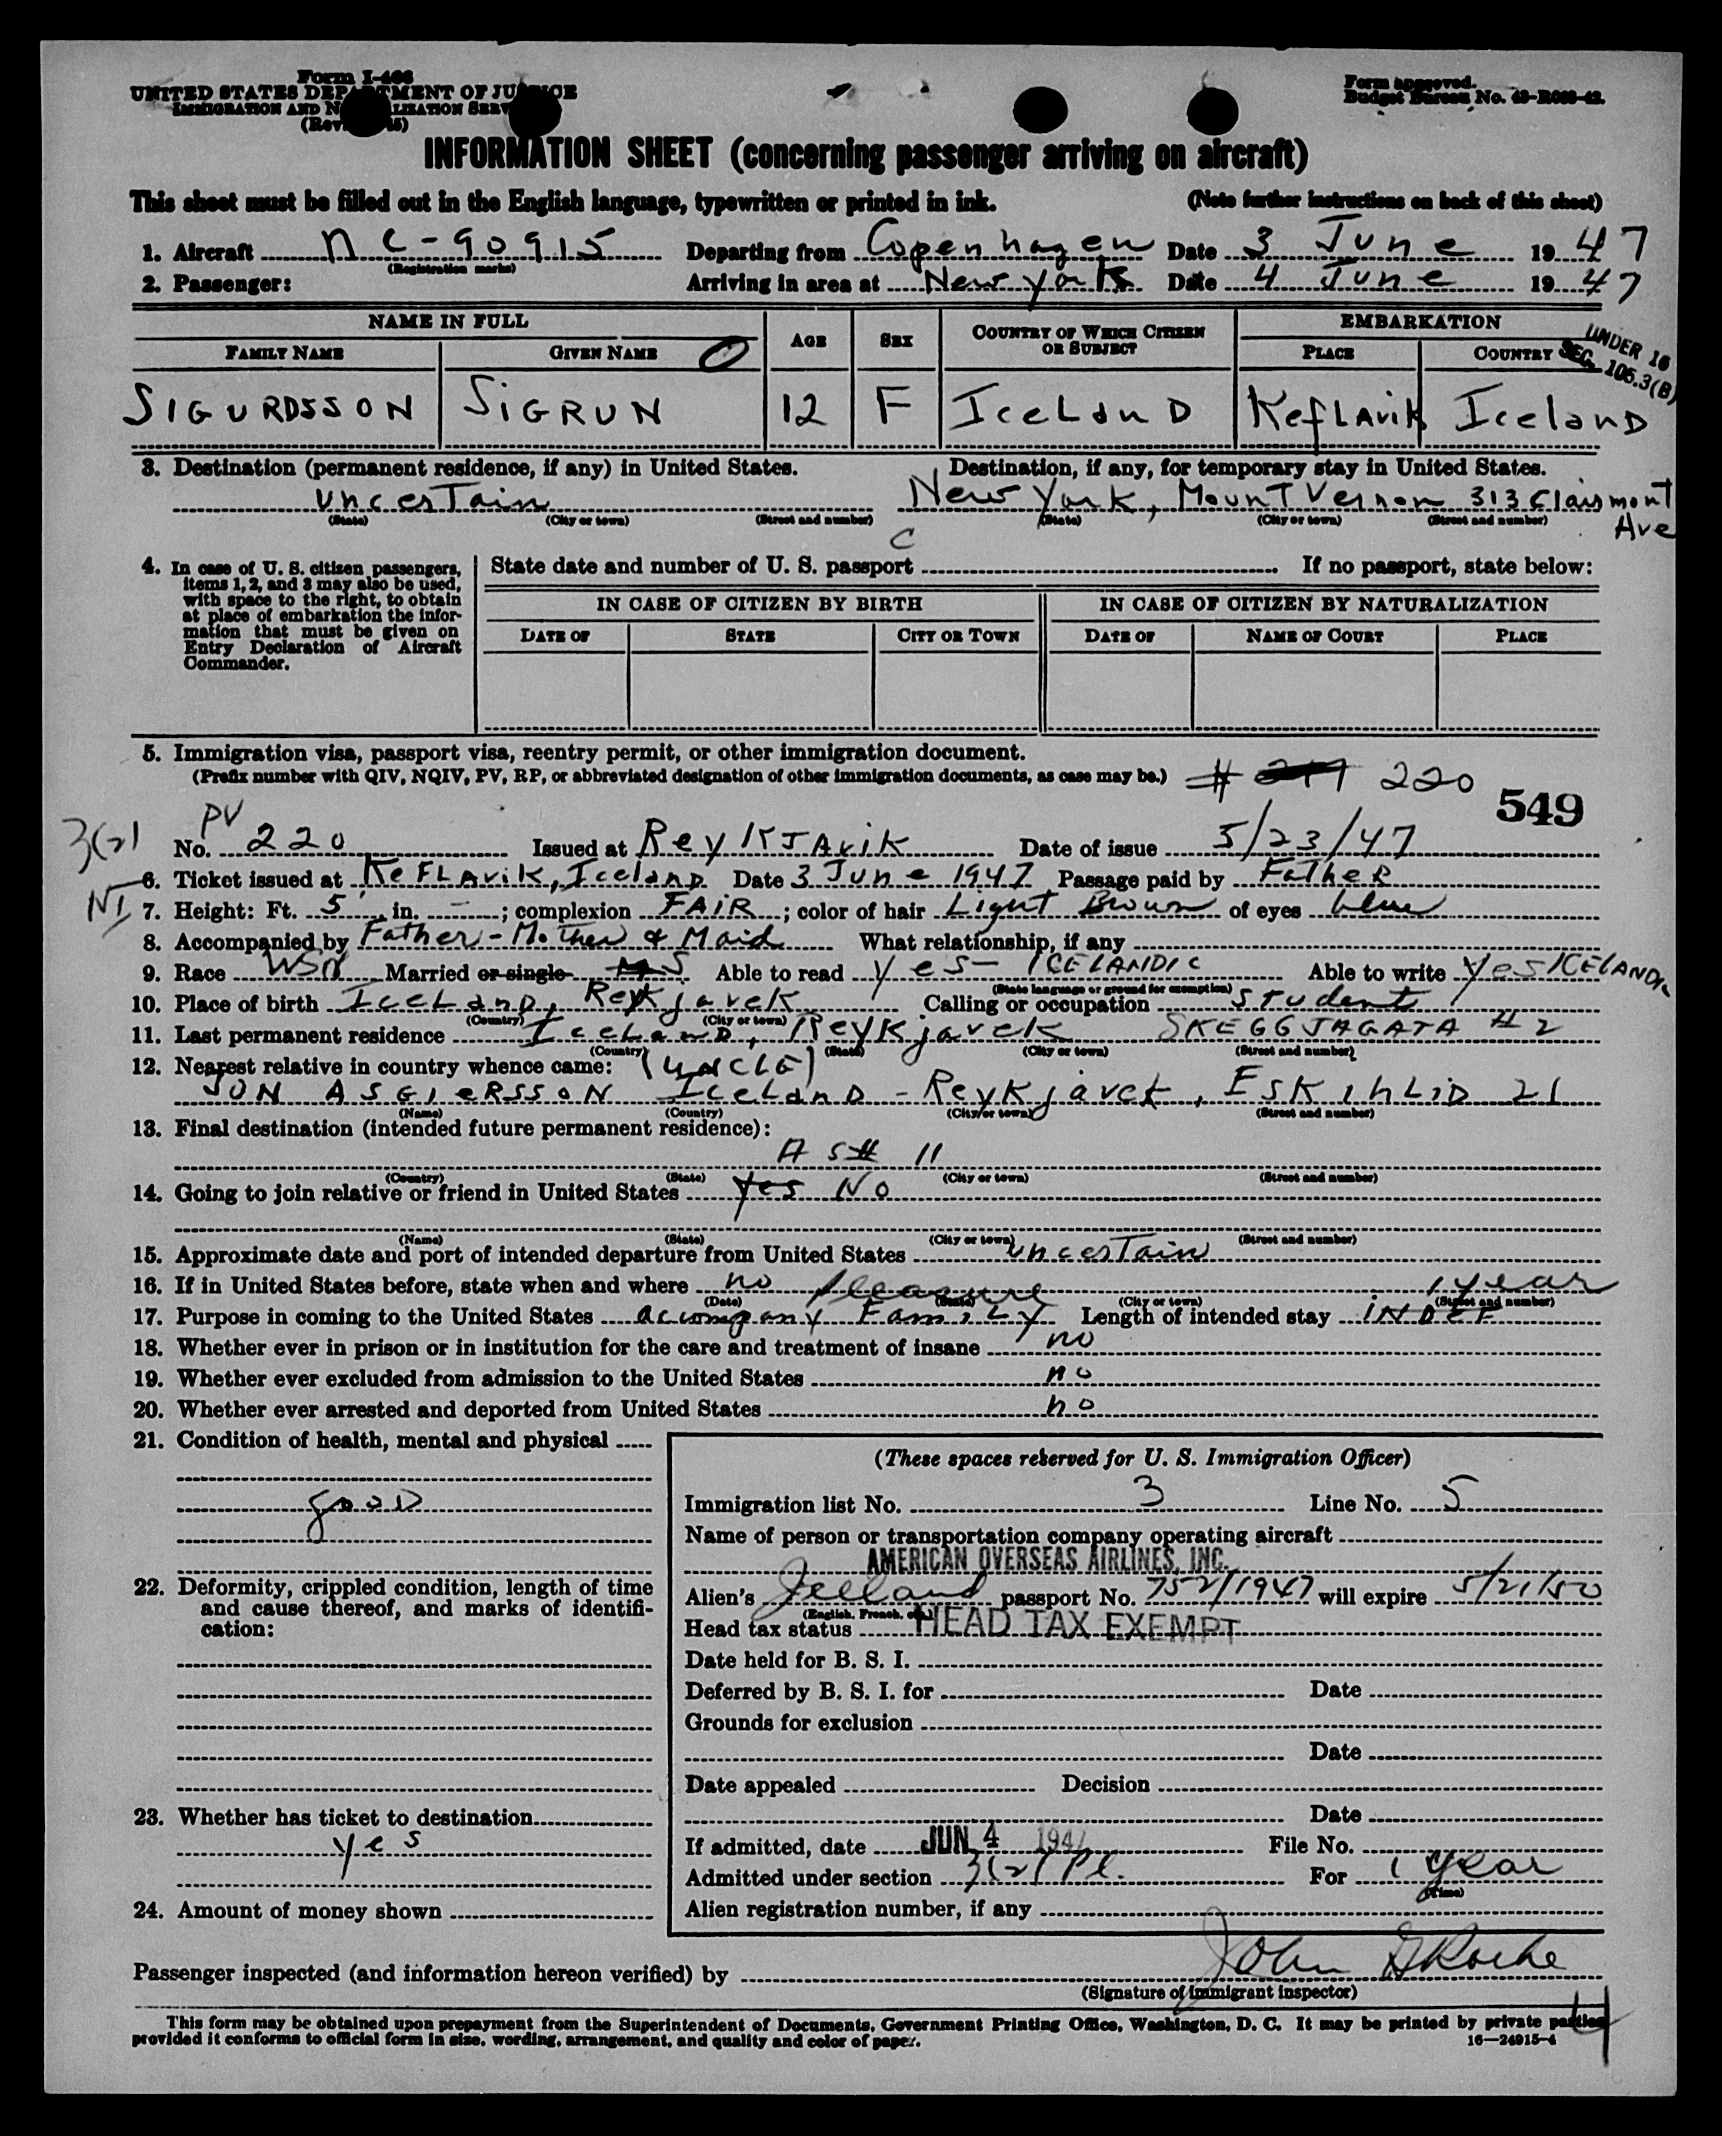 Form I-466
UNITED STATES DEPARTMENT OF JUSTICE
IMMIGRATION AND NATURALIZATION SERVICE
Form approved.
Budget Bureau No. 43-R063-42.
INFORMATION SHEET (concerning passenger arriving on aircraft)
This sheet must be filled out in the English language, typewritten or printed in ink. (Note further instructions on back of this sheet)
1. Aircraft NC-90915 Departing from Copenhagen Date 3 June 1947
(Registration marks)
2. Passenger: Arriving in area at New York Date 4 June 1947
NAME IN FULL AGE SEX COUNTRY OF WHICH CITIZEN OR SUBJECT EMBARKATION
FAMILY NAME GIVEN NAME PLACE COUNTRY
UNDER 16
SEC. 105.3(B)
SIGURDSSON SIGRUN 12 F IceLanD KefLAvik IcelanD
3. Destination (permanent residence, if any) in United States. Destination, if any, for temporary stay in United States.
uncerTain New York, MounT Vernon 313 ClairmonT Ave
(State) (City or town) (Street and number) (State) (City or town) (Street and number)
C
4. In case of U. S. citizen passengers, items 1, 2, and 3 may also be used, with space to the right, to obtain at place of embarkation the information that must be given on Entry Declaration of Aircraft Commander.
State date and number of U. S. passport If no passport, state below:
IN CASE OF CITIZEN BY BIRTH IN CASE OF CITIZEN BY NATURALIZATION
DATE OF STATE CITY OR TOWN DATE OF NAME OF COURT PLACE
5. Immigration visa, passport visa, reentry permit, or other immigration document.
(Prefix number with QIV, NQIV, PV, RP, or abbreviated designation of other immigration documents, as case may be.) # 219 220
549
3(2)
PV
No. 220 Issued at ReyKJAvik Date of issue 5/23/47
6. Ticket issued at KeFLAvik, IcelanD Date 3 June 1947 Passage paid by FatheR
NI
7. Height: Ft. 5' in. - ; complexion FAIR ; color of hair Light Brown of eyes blue
8. Accompanied by Father - Mother & Maid What relationship, if any
9. Race Married or single S Able to read yes - ICELANDIC Able to write Yes ICELANDIC
(State language or ground for exemption)
10. Place of birth IceLanD, Reykjavek Calling or occupation student
(Country) (City or town)
11. Last permanent residence IceLanD, Reykjavek SKEGGJAGATA # 2
(Country) (State) (City or town) (Street and number)
12. Nearest relative in country whence came: (UNCLE)
JON ASGIERSSON IceLanD - Reykjavek, ESKihLiD 21
(Name) (Country) (City or town) (Street and number)
13. Final destination (intended future permanent residence):
AS # 11
(Country) (State) (City or town) (Street and number)
14. Going to join relative or friend in United States Yes No
(Name) (State) (City or town) (Street and number)
15. Approximate date and port of intended departure from United States uncerTain
16. If in United States before, state when and where no
(Date) (State) (City or town) (Street and number)
pleasure 1 year
17. Purpose in coming to the United States accompany FamiLy Length of intended stay iNDEF
18. Whether ever in prison or in institution for the care and treatment of insane no
19. Whether ever excluded from admission to the United States no
20. Whether ever arrested and deported from United States no
21. Condition of health, mental and physical
gooD
22. Deformity, crippled condition, length of time and cause thereof, and marks of identification:
23. Whether has ticket to destination
yes
24. Amount of money shown
(These spaces reserved for U. S. Immigration Officer)
Immigration list No. 3 Line No. 5
Name of person or transportation company operating aircraft
AMERICAN OVERSEAS AIRLINES, INC.
Alien's Iceland passport No. 752/1947 will expire 5/21/50
(English, French, etc.)
Head tax status HEAD TAX EXEMPT
Date held for B. S. I.
Deferred by B. S. I. for Date
Grounds for exclusion
Date
Date appealed Decision
Date
If admitted, date JUN 4 1947 File No.
Admitted under section 3(2) Pl. For 1 year
(Time)
Alien registration number, if any
Passenger inspected (and information hereon verified) by John G Roche
(Signature of immigrant inspector)
This form may be obtained upon prepayment from the Superintendent of Documents, Government Printing Office, Washington, D. C. It may be printed by private parties
provided it conforms to official form in size, wording, arrangement, and quality and color of paper.
16—24915-4
4